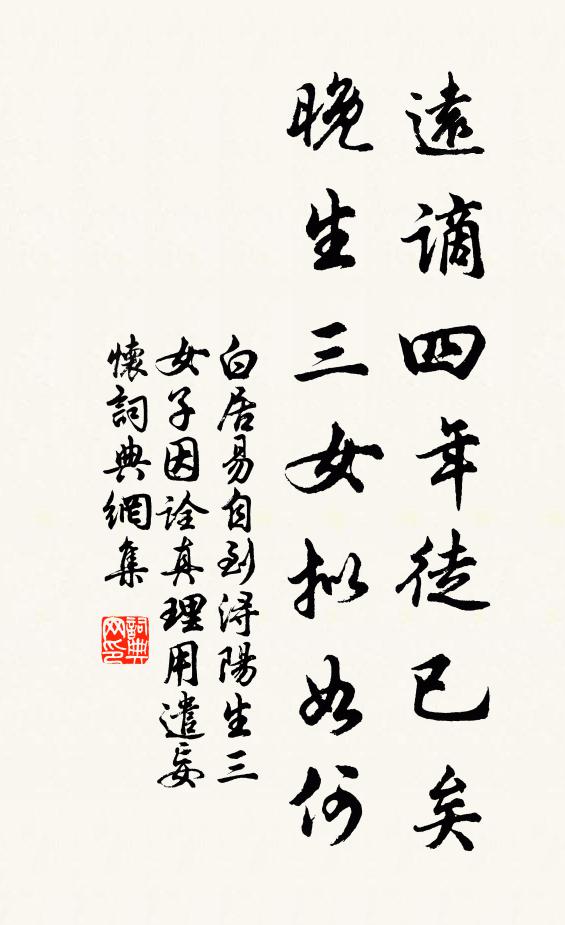 遠謫四年徒已矣
晚生三女擬如何
白居易自到潯陽生三
女子因詮真理用遣妄
懷詞典網集
詞典
网印